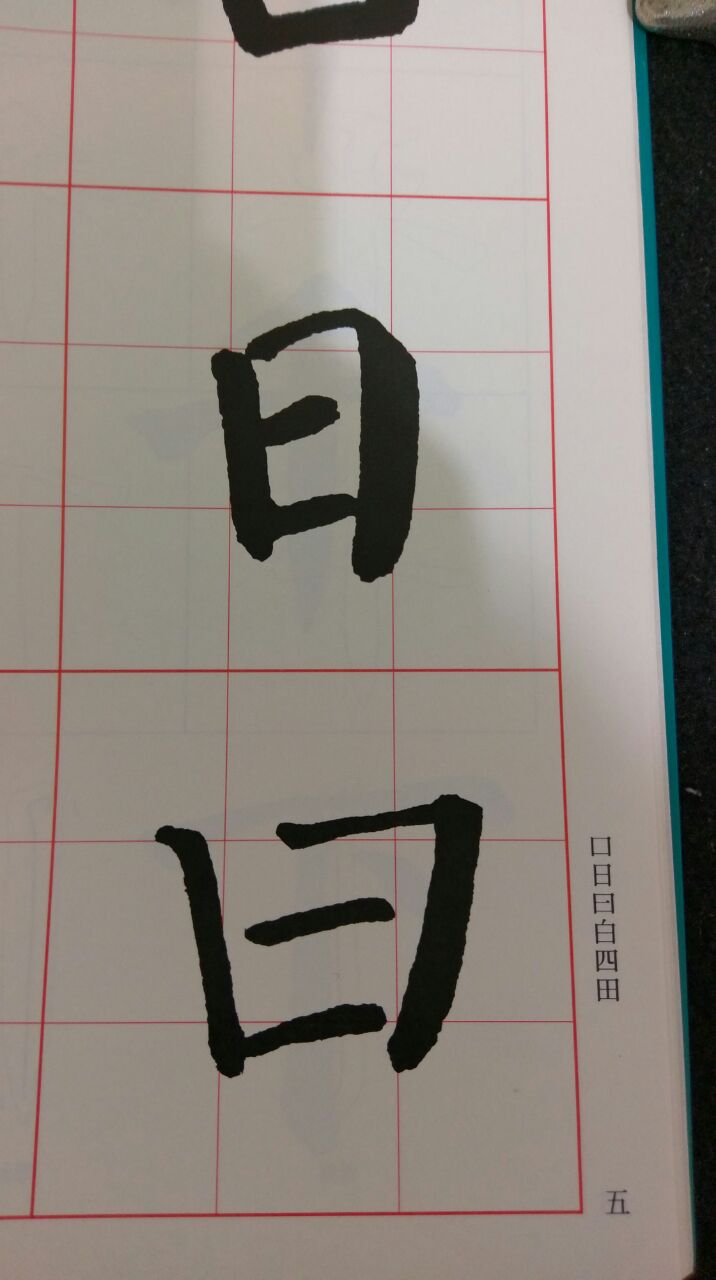 日
曰
口日曰白四田
五